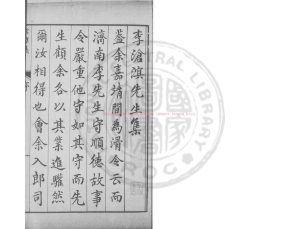 李滄溟先生集
蓋余嘉靖間為滑令云而
濟南李先生守順德故事
令嚴重他守如其守而先
生顧余各以其業進驩然
爾汝相得也會余入郎司